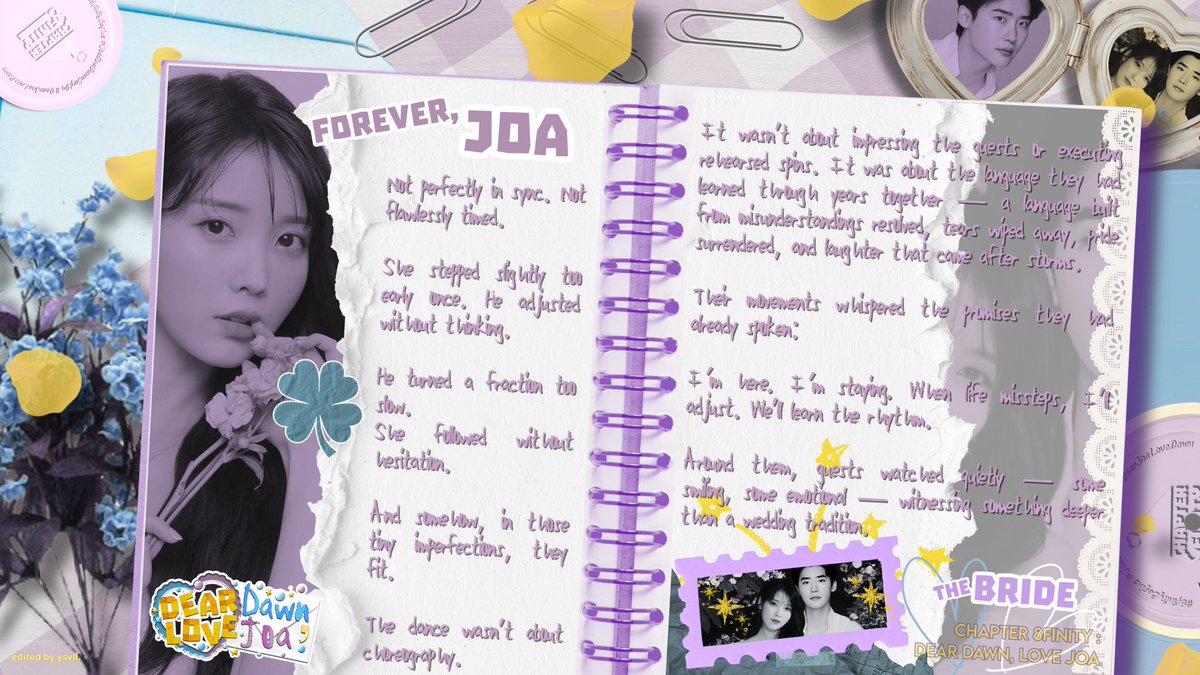 FOREVER, JOA
Not perfectly in sync. Not
flawlessly timed.
She stepped slightly too
early once. He adjusted
without thinking.
He turned a fraction too
slow.
She followed without
hesitation.
And somehow, in those
tiny imperfections, they
fit.
The dance wasn't about
choreography.
It wasn't about impressing the guests or executing
rehearsed spins. It was about the language they had
learned through years together — a language built
from misunderstandings resolved, tears wiped away, pride
surrendered, and laughter that came after storms.
Their movements whispered the promises they had
already spoken:
I'm here. I'm staying. When life missteps, I'll
adjust. We'll learn the rhythm.
Around them, guests watched quietly — some
smiling, some emotional — witnessing something deeper
than a wedding tradition.
DEAR Dawn
LOVE Joa;
THE BRIDE
CHAPTER 8FINITY :
DEAR DAWN, LOVE JOA
edited by ysvll.